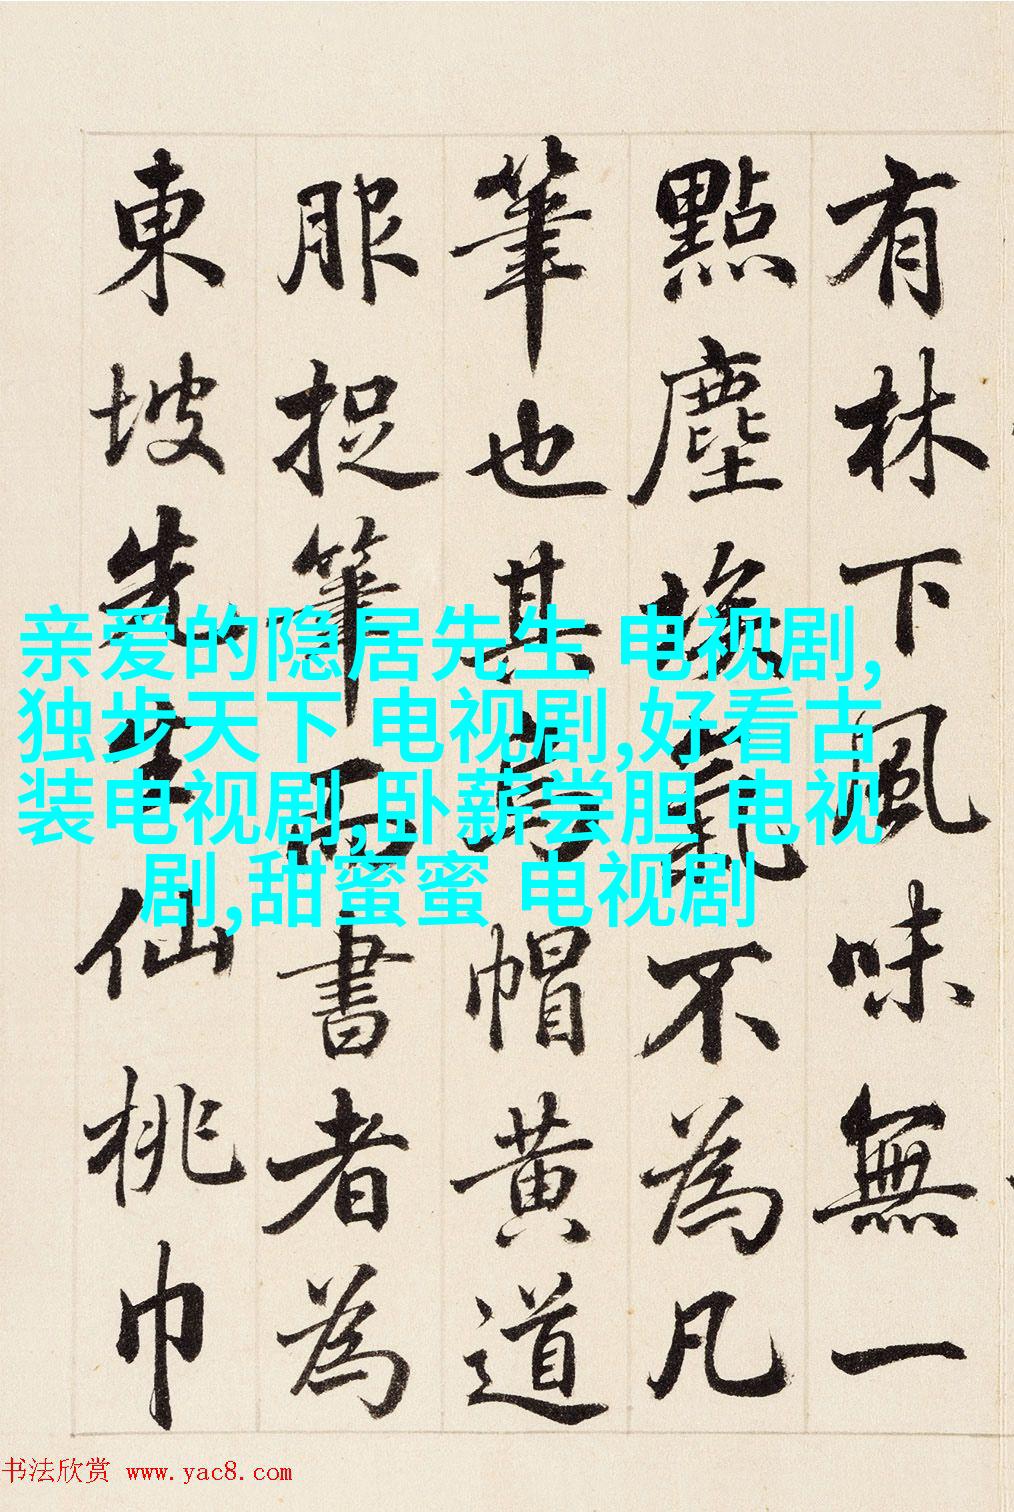 有林下風味無一
點塵埃氣不為凡
筆也其烏帽黃道
服捉筆而書者為
東坡先生仙桃巾
亲爱的隐居先生 电视剧,
独步天下 电视剧,好看古
装电视剧,卧薪尝胆 电视
剧,甜蜜蜜 电视剧
书法欣赏 www.yac8.com